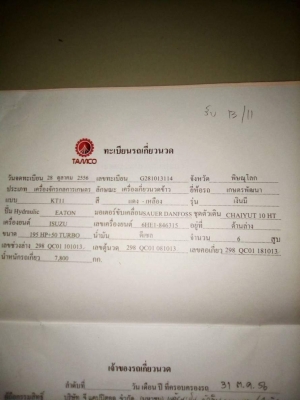 รับ B/11
TAMCO
ทะเบียนรถเกี่ยวนวด
วันจดทะเบียน 28 ตุลาคม 2556 เลขทะเบียน G281013114 จังหวัด พิษณุโลก
ประเภท เครื่องจักรกลการเกษตร ลักษณะ เครื่องเกี่ยวนวดข้าว ยี่ห้อรถ เกษตรพัฒนา
แบบ KT11 สี แดง - เหลือง รุ่น เงินมี
ปั๊ม Hydraulic EATON มอเตอร์ขับเคลื่อน SAUER DANFOSS ชุดล้วเดิน CHAIYUT 10 HT
เครื่องยนต์ ISUZU เลขเครื่องยนต์ 6HE1-846715 อยู่ที่ ด้านล่าง
ขนาด 195 HP+50 TURBO น้ำมัน ดีเซล จำนวน 6 สูบ
เลขช่วงล่าง 298 QC01 101013 เลขตู้นวด 298 QC01 081013 เลขคอเกี่ยว 298 QC01 181013
น้ำหนักรถเกี่ยว 7,800 กก.
เจ้าของรถเกี่ยวนวด
ลำดับที่ วัน เดือน ปี ที่ครอบครองรถ 31 ต.ค. 56
ผู้ถือกรรมสิทธิ์ บริษัท จำกัด